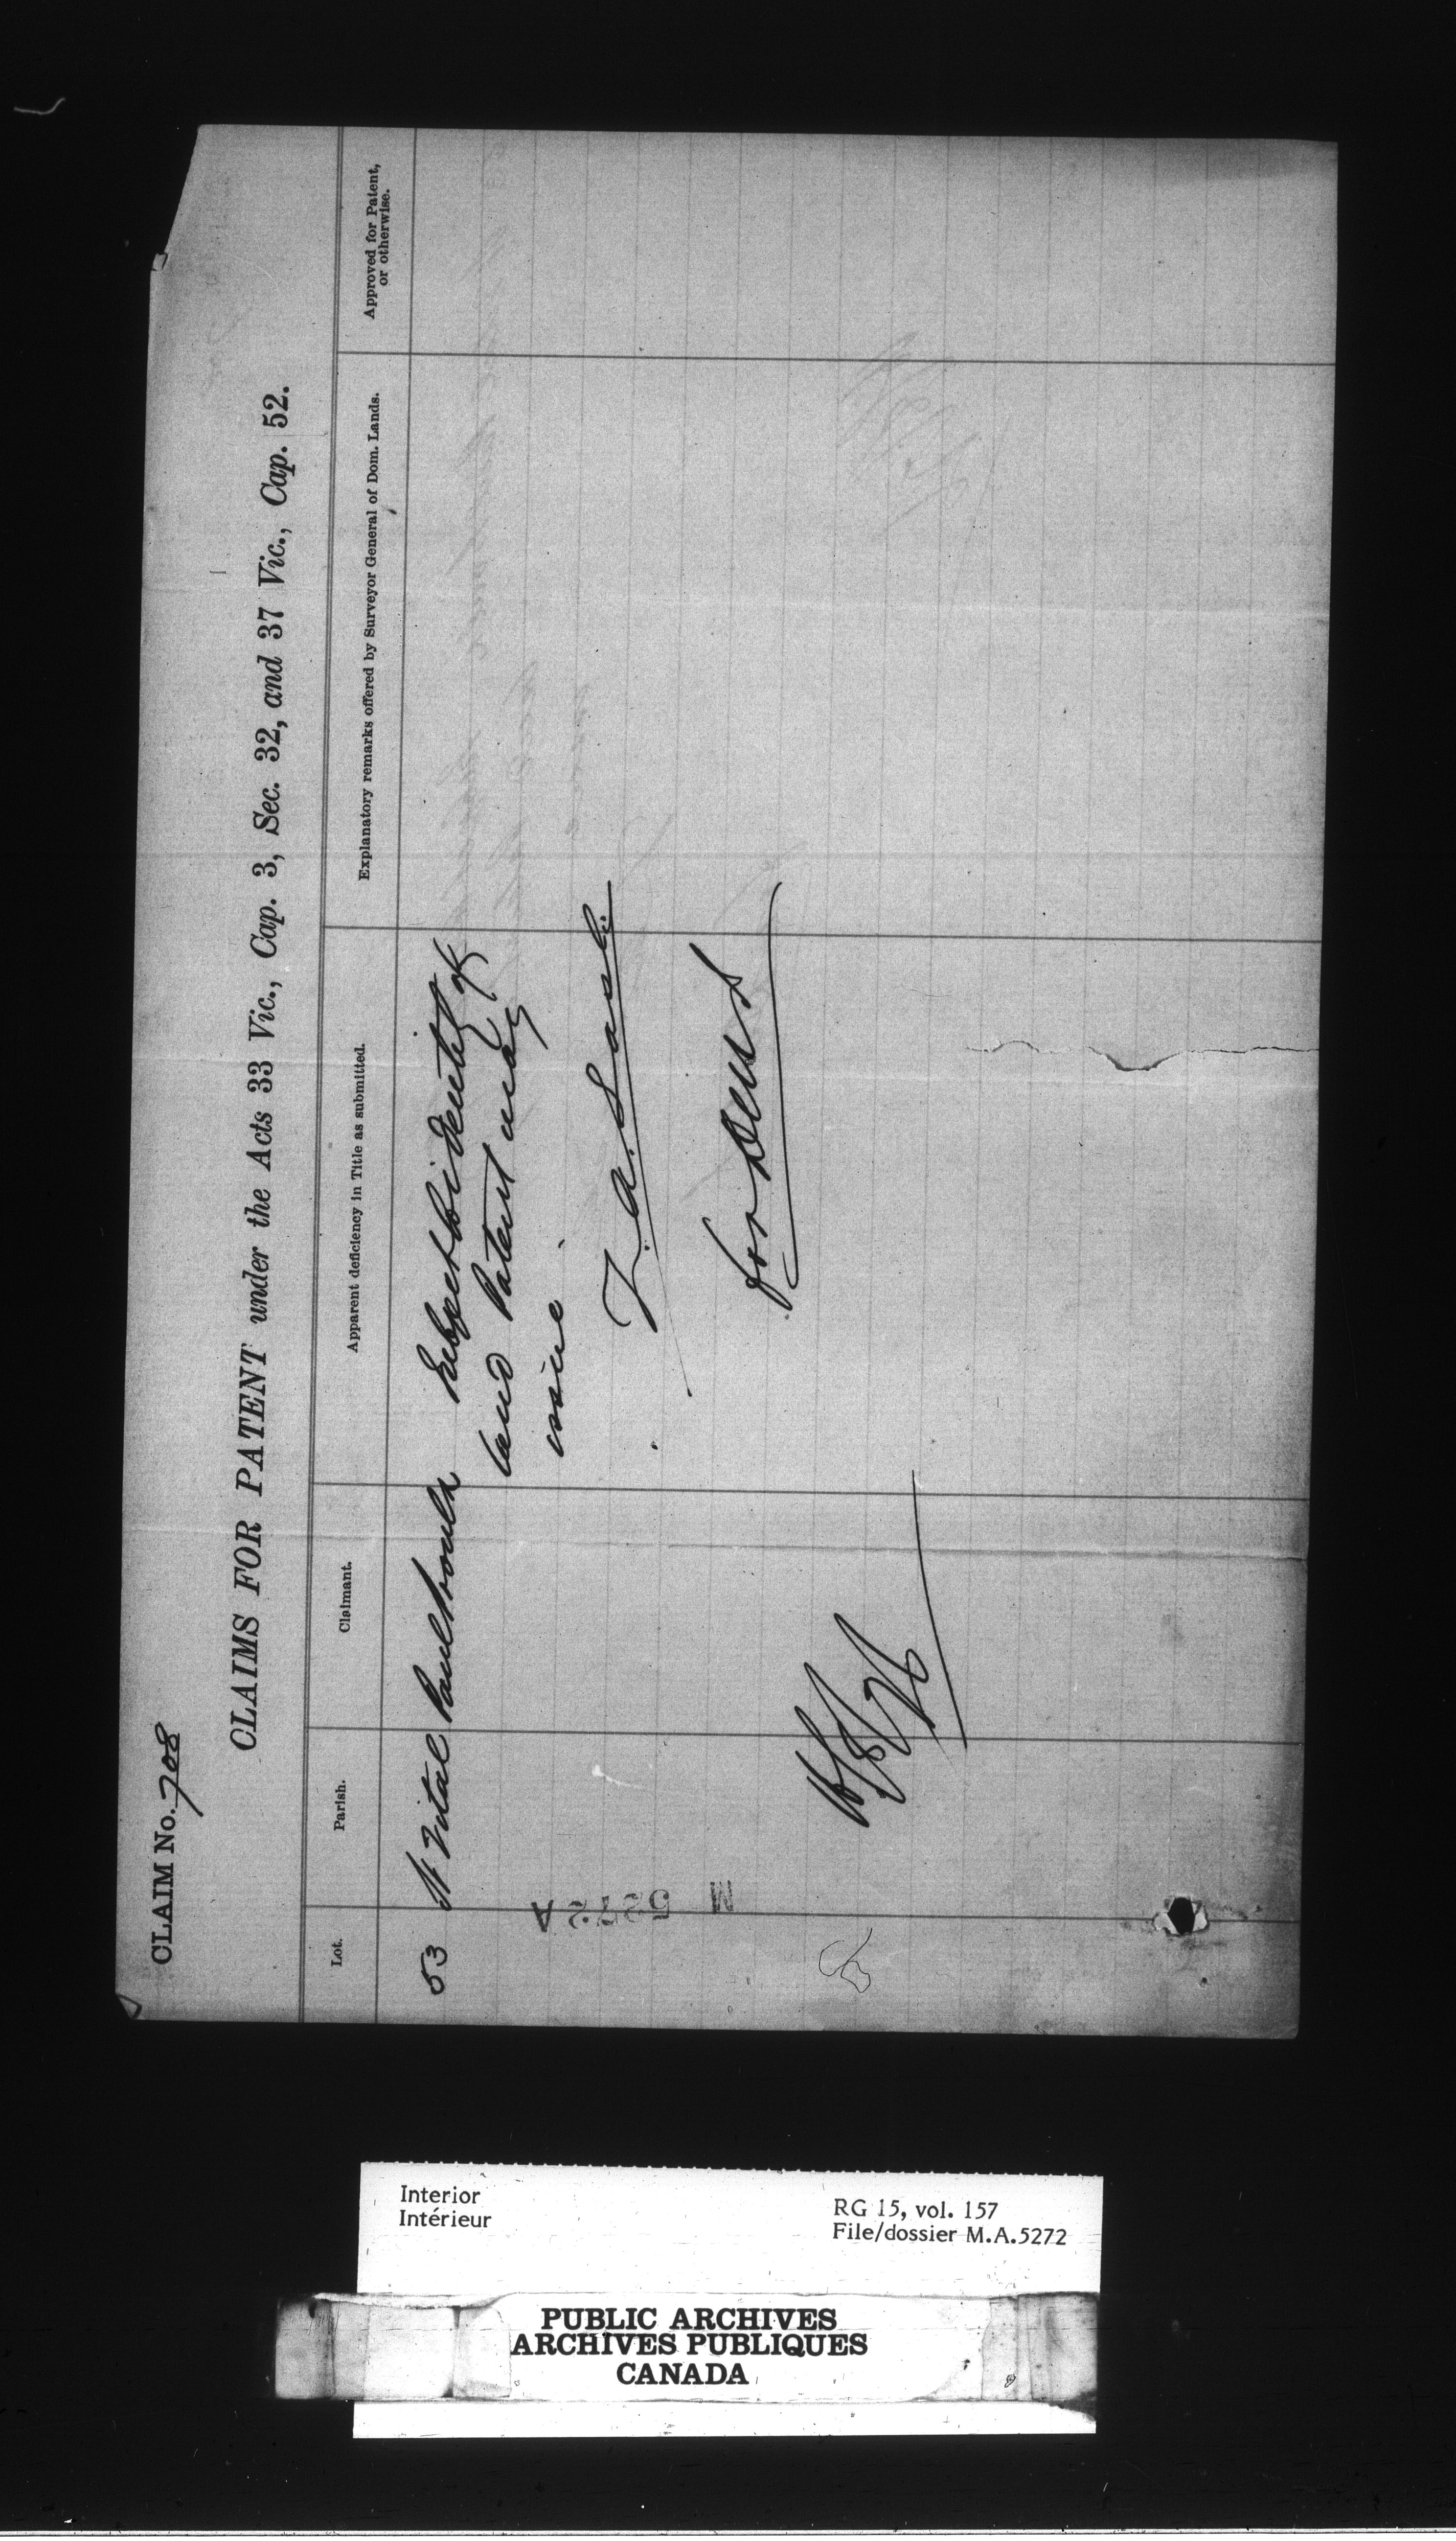 CLAIM No. 708
CLAIMS FOR PATENT under the Acts 33 Vic., Cap. 3, Sec. 32, and 37 Vic., Cap. 52.
Lot.
Parish.
Claimant.
Apparent deficiency in Title as submitted.
Explanatory remarks offered by Surveyor General of Dom. Lands.
Approved for Patent,
or otherwise.
53 St Vital Subject to identity of
land Patent may
issue
for
M 5272 A
Interior
Intérieur
RG 15, vol. 157
File/dossier M.A.5272
PUBLIC ARCHIVES
ARCHIVES PUBLIQUES
CANADA